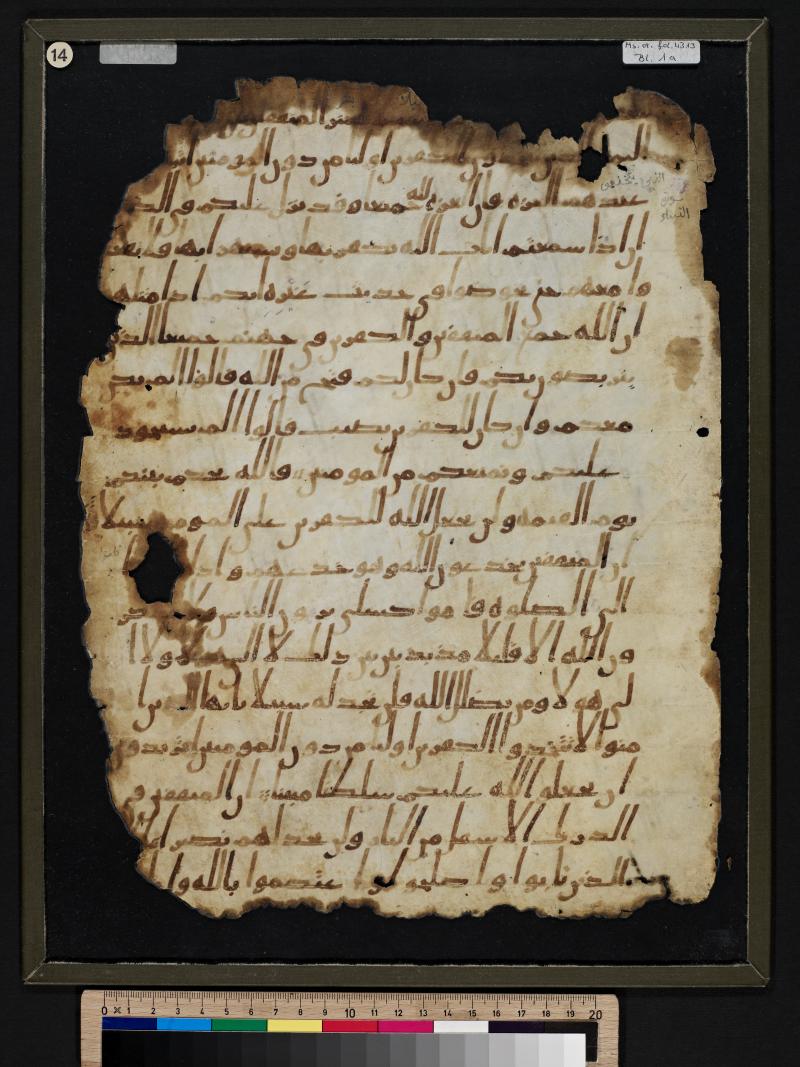 14
Ms. or. fol. 4313
Bl. 1a
المنفقين
اليما الذين يتخذون الكفرين اوليا من دون المومنين
عندهم العزة فان العزة لله جميعا وقد نزل عليكم في
ان اذا سمعتم ايت الله يكفر بها ويستهزا بها فلا تقعد
وا معهم حتى يخوضوا في حديث غيره انكم اذا مثلهم
ان الله جمع المنفقين والكفرين في جهنم جميعا الذين
يتربصون بكم فان كان لكم فتح من الله قالوا الم نكن
معكم وان كان للكفرين نصيب قالوا الم نستحوذ
عليكم ونمنعكم من المومنين فالله يحكم بينكم
يوم القيمة ولن يجعل الله للكفرين على المومنين سبيلا
ان المنفقين يخدعون الله وهو خدعهم واذا
الى الصلوة قاموا كسلى يرون الناس ولا يذكر
ون الله الا قليلا مذبذبين بين ذلك لا الى هولا ولا ا
لى هولا ومن يضلل الله فلن تجد له سبيلا يايها الذين ا
منوا لا تتخذوا الكفرين اوليا من دون المومنين اتريدون
ان تجعلوا لله عليكم سلطنا مبينا ان المنفقين في
الدرك الاسفل من النار ولن تجد لهم نصيرا
الذين تابوا واصلحوا واعتصموا بالله وا
سورة
النساء
0 1 2 3 4 5 6 7 8 9 10 11 12 13 14 15 16 17 18 19 20